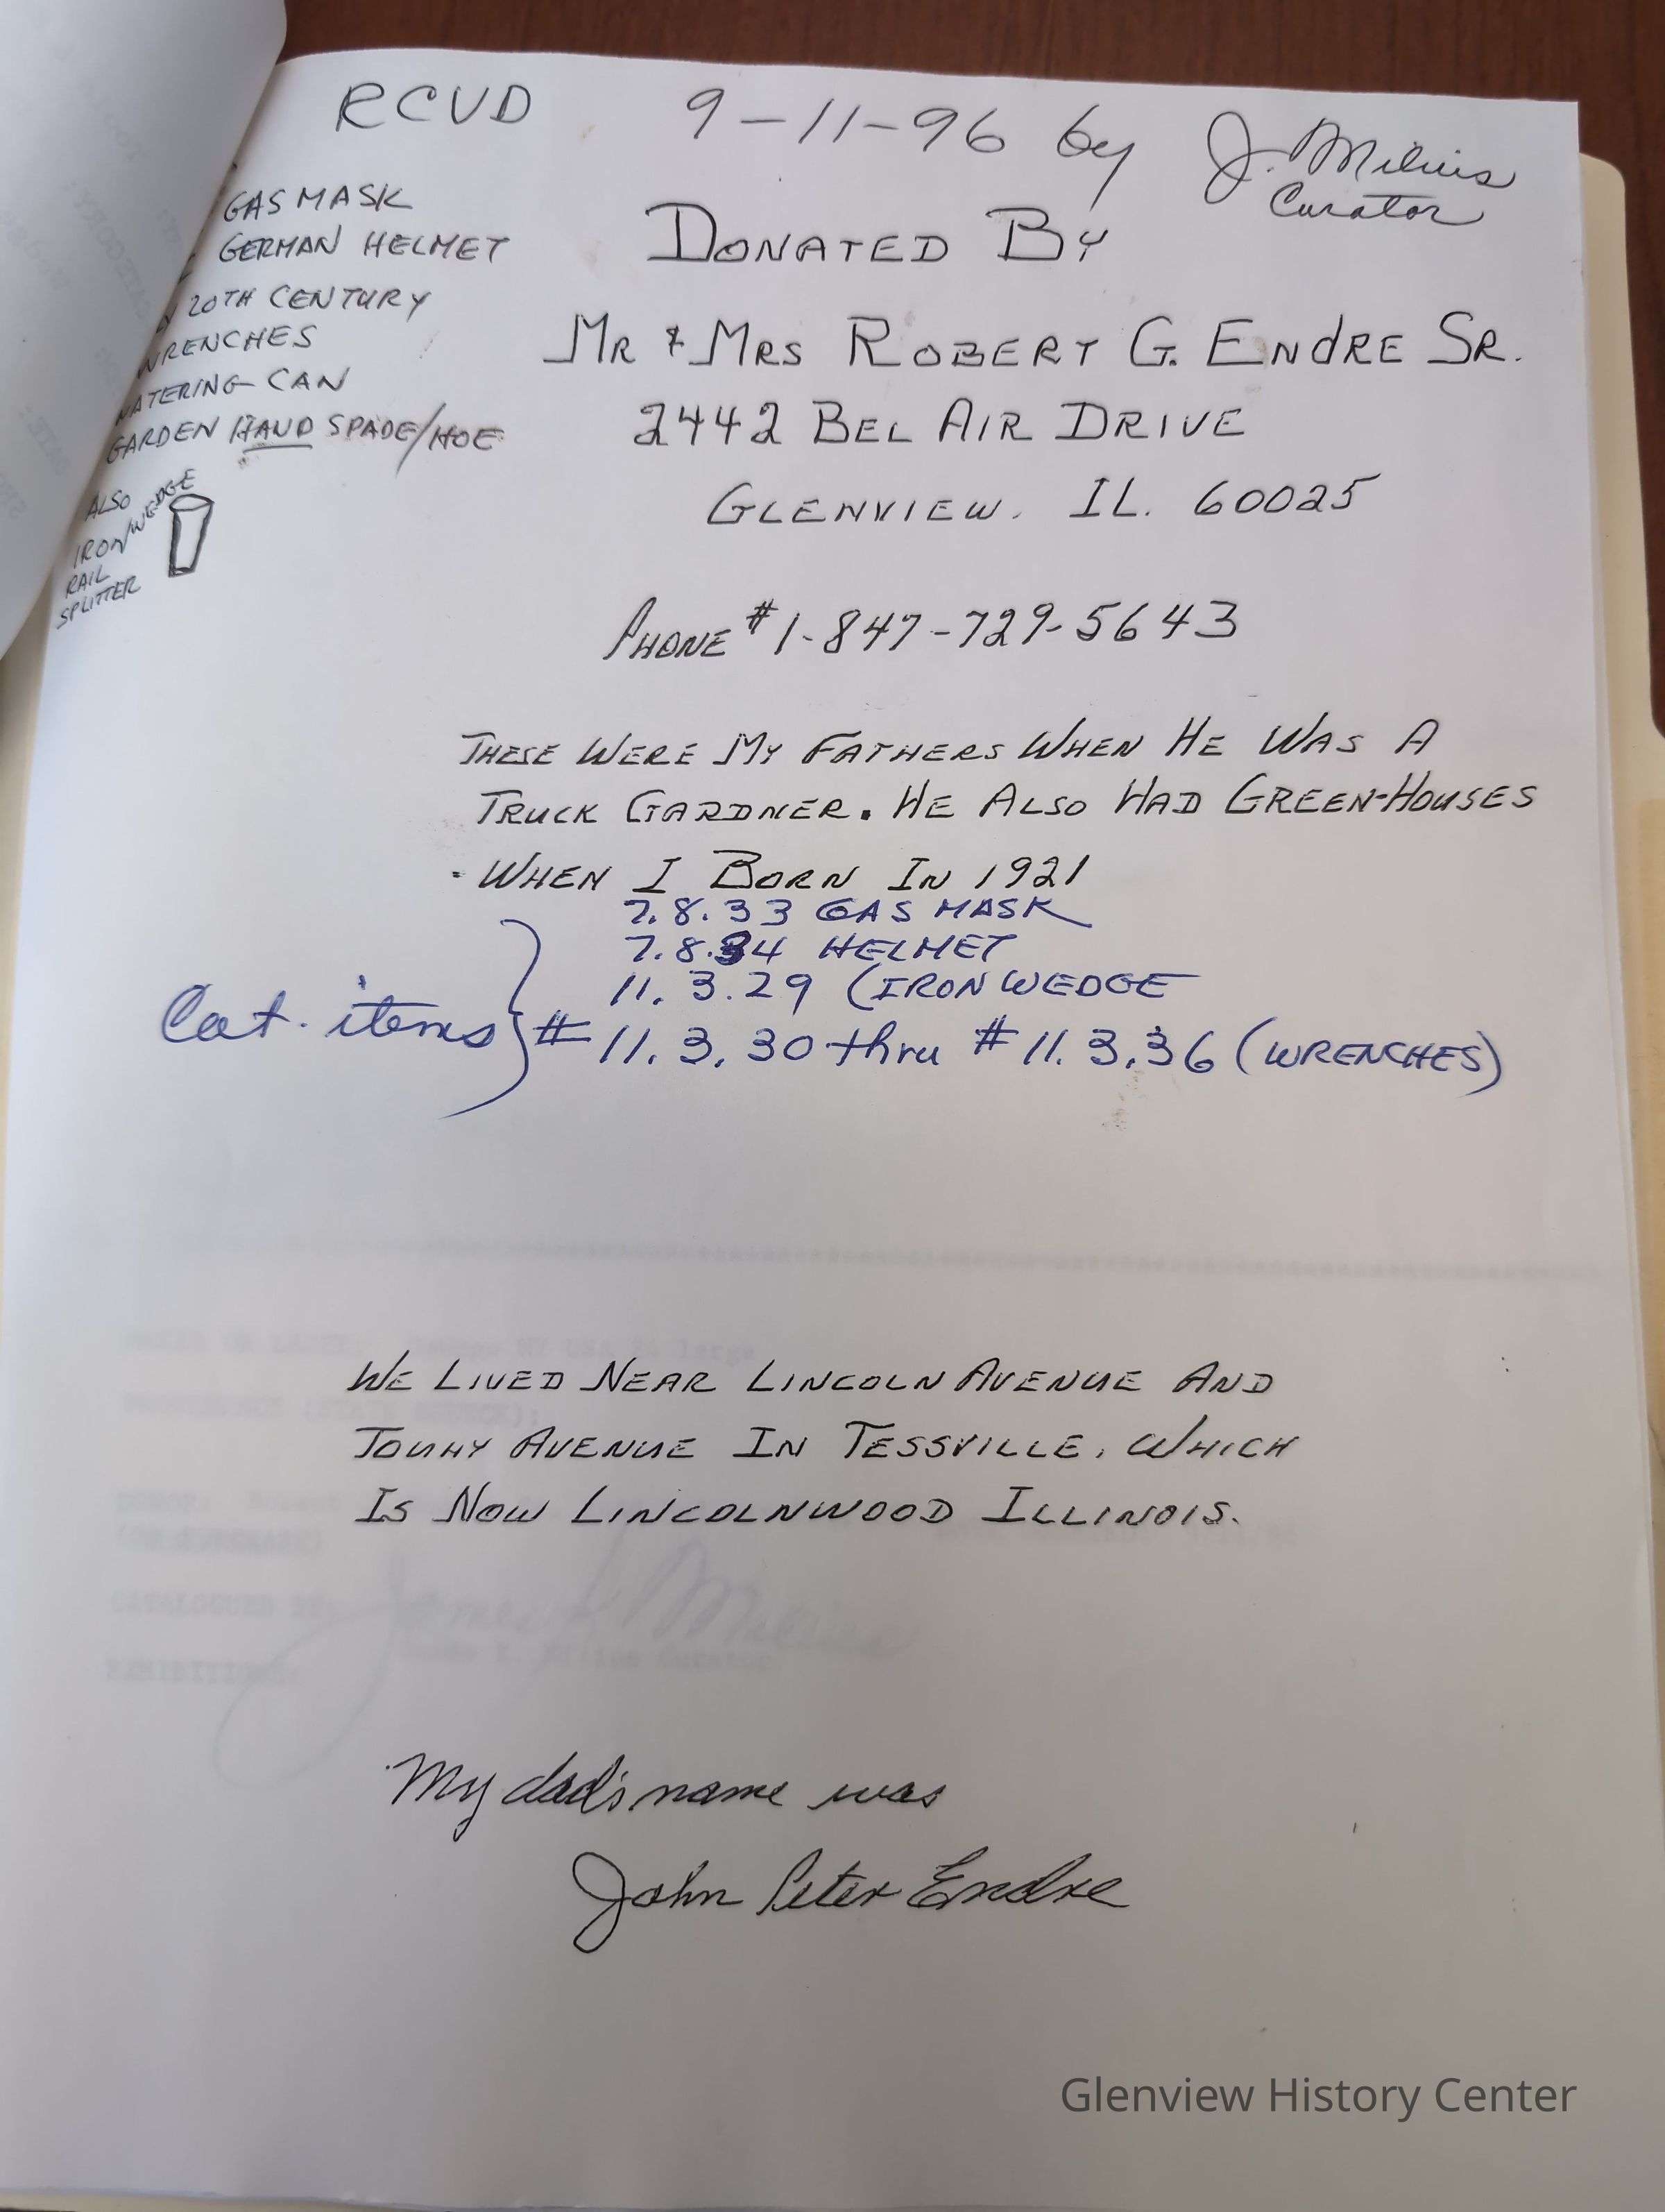 RCVD 9-11-96 by J. Milius
Curator
GAS MASK
GERMAN HELMET
20TH CENTURY
WRENCHES
WATERING CAN
GARDEN HAND SPADE/HOE
ALSO
IRON/WEDGE
RAIL
SPLITTER
DONATED BY
MR & MRS ROBERT G. ENDRE SR.
2442 BEL AIR DRIVE
GLENVIEW. IL. 60025
PHONE # 1-847-729-5643
THESE WERE MY FATHERS WHEN HE WAS A
TRUCK GARDNER. HE ALSO HAD GREEN-HOUSES
- WHEN I BORN IN 1921
7.8.33 GAS MASK
7.8.34 HELMET
11.3.29 (IRON WEDGE
Cat. items } # 11.3.30 thru # 11.3.36 (WRENCHES)
WE LIVED NEAR LINCOLN AVENUE AND
TOUHY AVENUE IN TESSVILLE, WHICH
IS NOW LINCOLNWOOD ILLINOIS.
My dad's name was
John Peter Endre
Glenview History Center